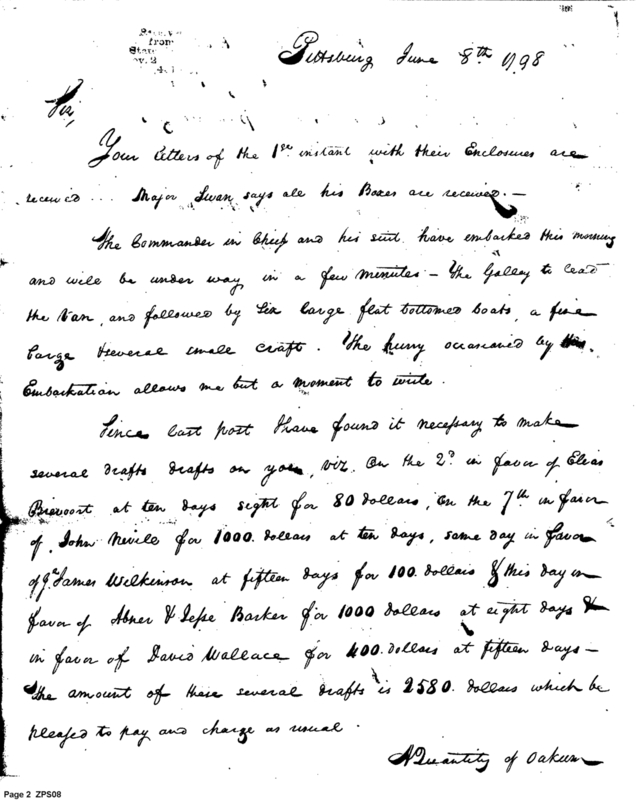 from
Pittsburg June 8th 1798
Sir,
Your letters of the 1st instant with their Enclosures are
received ... Major Swan says all his Boxes are received. —
The Commander in Cheif and his suit have embarked this morning
and will be under way in a few minutes — The Galley to lead
the Van, and followed by Six large flat bottomed boats, a fine
barge & several small craft. The hurry occasioned by this
Embarkation allows me but a moment to write.
Since last post I have found it necessary to make
several drafts drafts on you, viz. On the 2d in favor of Elias
Brevoort at ten days sight for 80 dollars, On the 7th in favor
of John Nevill for 1000 dollars at ten days, same day in favor
of Gl James Wilkinson at fifteen days for 100 dollars & this day in
favor of Abner & Jesse Barker for 1000 dollars at eight days &
in favor of David Wallace for 400 dollars at fifteen days —
The amount of these several drafts is 2580 dollars which be
pleased to pay and charge as usual.
A Quantity of Oakum
Page 2 ZPS08